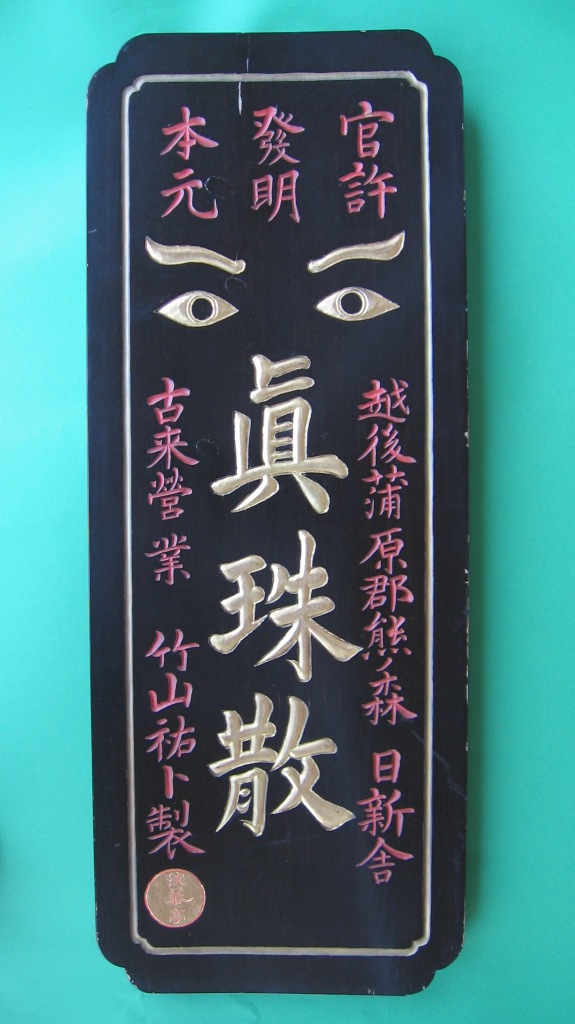 官許
發明
本元
越後蒲原郡熊ノ森 日新舎
眞珠散
古来營業 竹山祐卜製